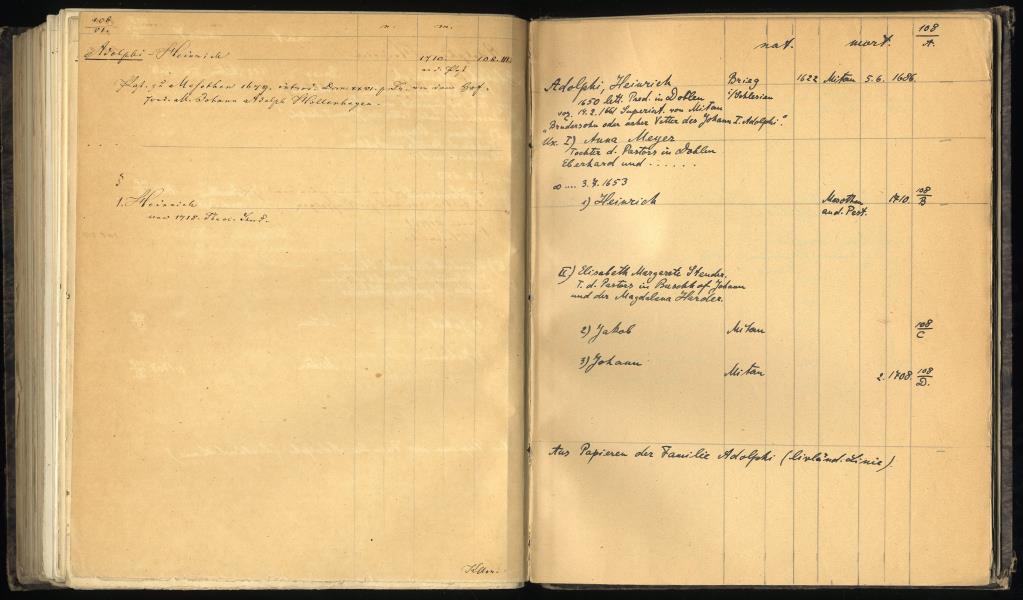 108
VI.
n.
m.
Adolphi - Heinrich
1710.
108. III.
an d. Pest
Past. zu Mesothen 1679. introd. Dom. XXVI. p. Tr. von dem Hof-
pred. M. Johann Adolph Hollenhagen.
§
1. Heinrich
1718. Theol. Stud.
108
A.
nat.
mort.
Adolphi, Heinrich
Brieg
1622
Mitau
5.6.
1686
i/Schlesien
1650 lett. Pred. in Doblen
voz. 14.2.1661 Superint. von Mitau
"Brudersohn oder naher Vetter des Johann I. Adolphi".
Ux. I) Anna Meyer
Tochter d. Pastors in Doblen
Eberhard und . . . . . .
∞ .... 3.7.1653
1) Heinrich
Mesothen
1710.
108
B
an d. Pest.
II) Elisabeth Margarete Stender.
T. d. Pastors in Buschhof Johann
und der Magdalena Harder.
2) Jakob
Mitau
108
C
3) Johann
Mitau
2. 1708.
108
D.
Aus Papieren der Familie Adolphi (livländ. Linie)